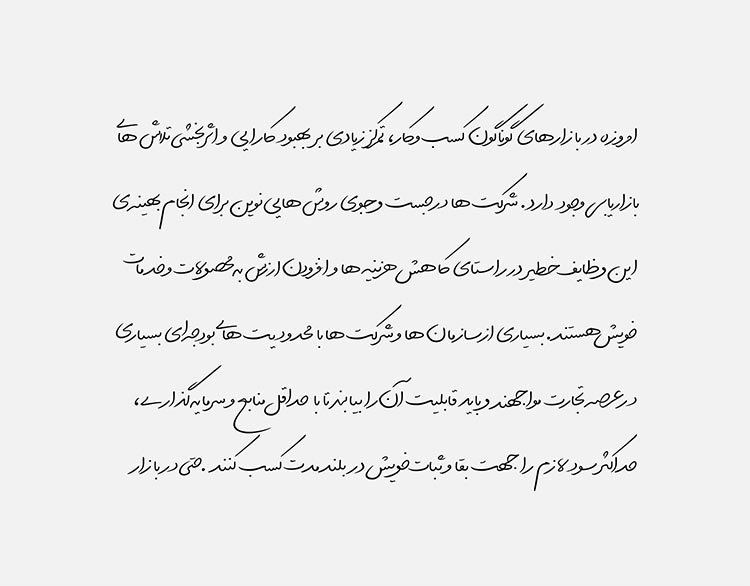 امروزه در بازارهای گوناگون کسب و کار، تمرکز زیادی بر بهبود کارایی و اثربخشی تلاش های
بازاریابی وجود دارد. شرکت ها در جست و جوی روش هایی نوین برای انجام بهینه‌ی
این وظایف خطیر در راستای کاهش هزینه ها و افزودن ارزش به محصولات و خدمات
خویش هستند. بسیاری از سازمان ها و شرکت ها با محدودیت های بودجه‌ای بسیاری
در عرصه تجارت مواجهند و باید قابلیت آن را بیابند تا با حداقل منابع و سرمایه گذاری،
حداکثر سود لازم را جهت بقا و ثبات خویش در بلند مدت کسب کنند. حتی در بازار